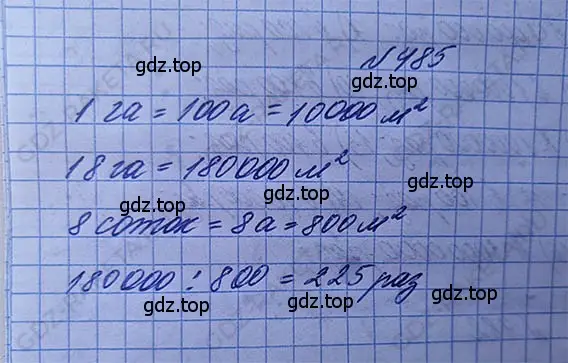 №485
gdz.top gdz.top
1 га = 100 а = 10000 м²
18 га = 180000 м²
gdz.top gdz.top
8 соток = 8а = 800 м²
180000 : 800 = 225 раз
gdz.top gdz.top